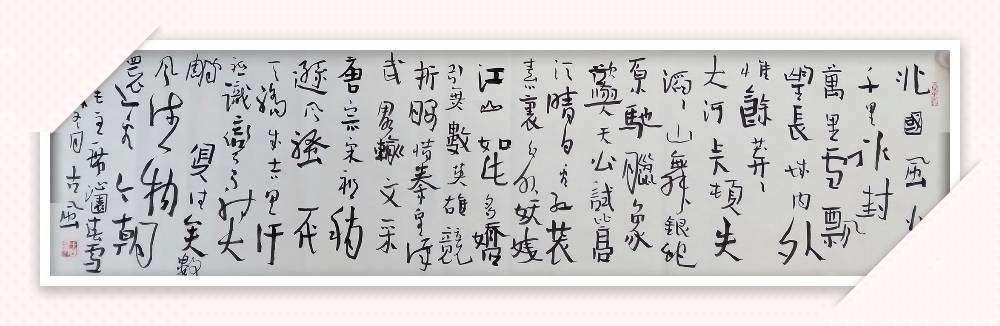 北國風光
千里冰封
萬里雪飄
望長城内外
惟餘莽莽
大河上下頓失
滔滔山舞銀蛇
原馳臘象
欲與天公試比高
須晴日看紅裝
素裹分外妖嬈
江山如此多嬌
引無數英雄競
折腰惜秦皇漢
武略輸文采
唐宗宋祖稍
遜風騷一代
天驕成吉思汗
只識彎弓射大
雕俱往矣數
風流人物
還看今朝
毛主席沁園春雪